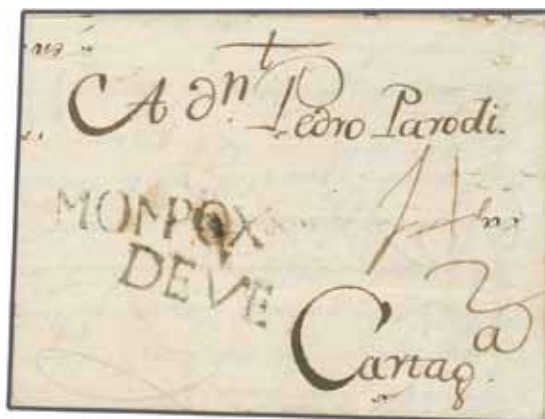 A dn. Pedro Parodi.
MOMPOX
DEVE
Cartag.a